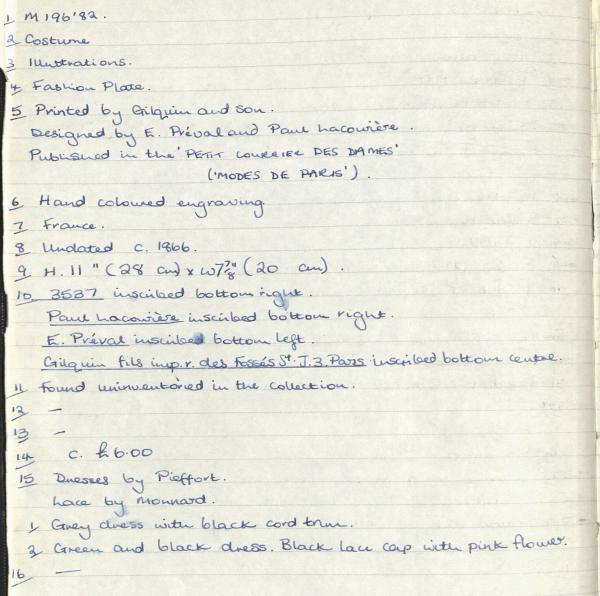 1 M 196'82.
2 Costume
3 Illustrations.
4 Fashion Plate.
5 Printed by Gilquin and son.
Designed by E. Préval and Paul Lacourière.
Published in the 'PETIT COURRIER DES DAMES'
('MODES DE PARIS').
6 Hand coloured engraving.
7 France.
8 Undated c. 1866.
9 H. 11" (28 cm) x W 7 7/8" (20 cm).
10 3537 inscribed bottom right.
Paul Lacourière inscribed bottom right.
E. Préval inscribed bottom left.
Gilquin fils imp. r. des Fossés St. J. 3. Paris inscribed bottom centre.
11 Found uninventoried in the collection.
12 —
13 —
14 c. £6.00
15 Dresses by Pieffort.
Lace by Monnard.
1 Grey dress with black cord trim.
2 Green and black dress. Black lace cap with pink flower.
16 —